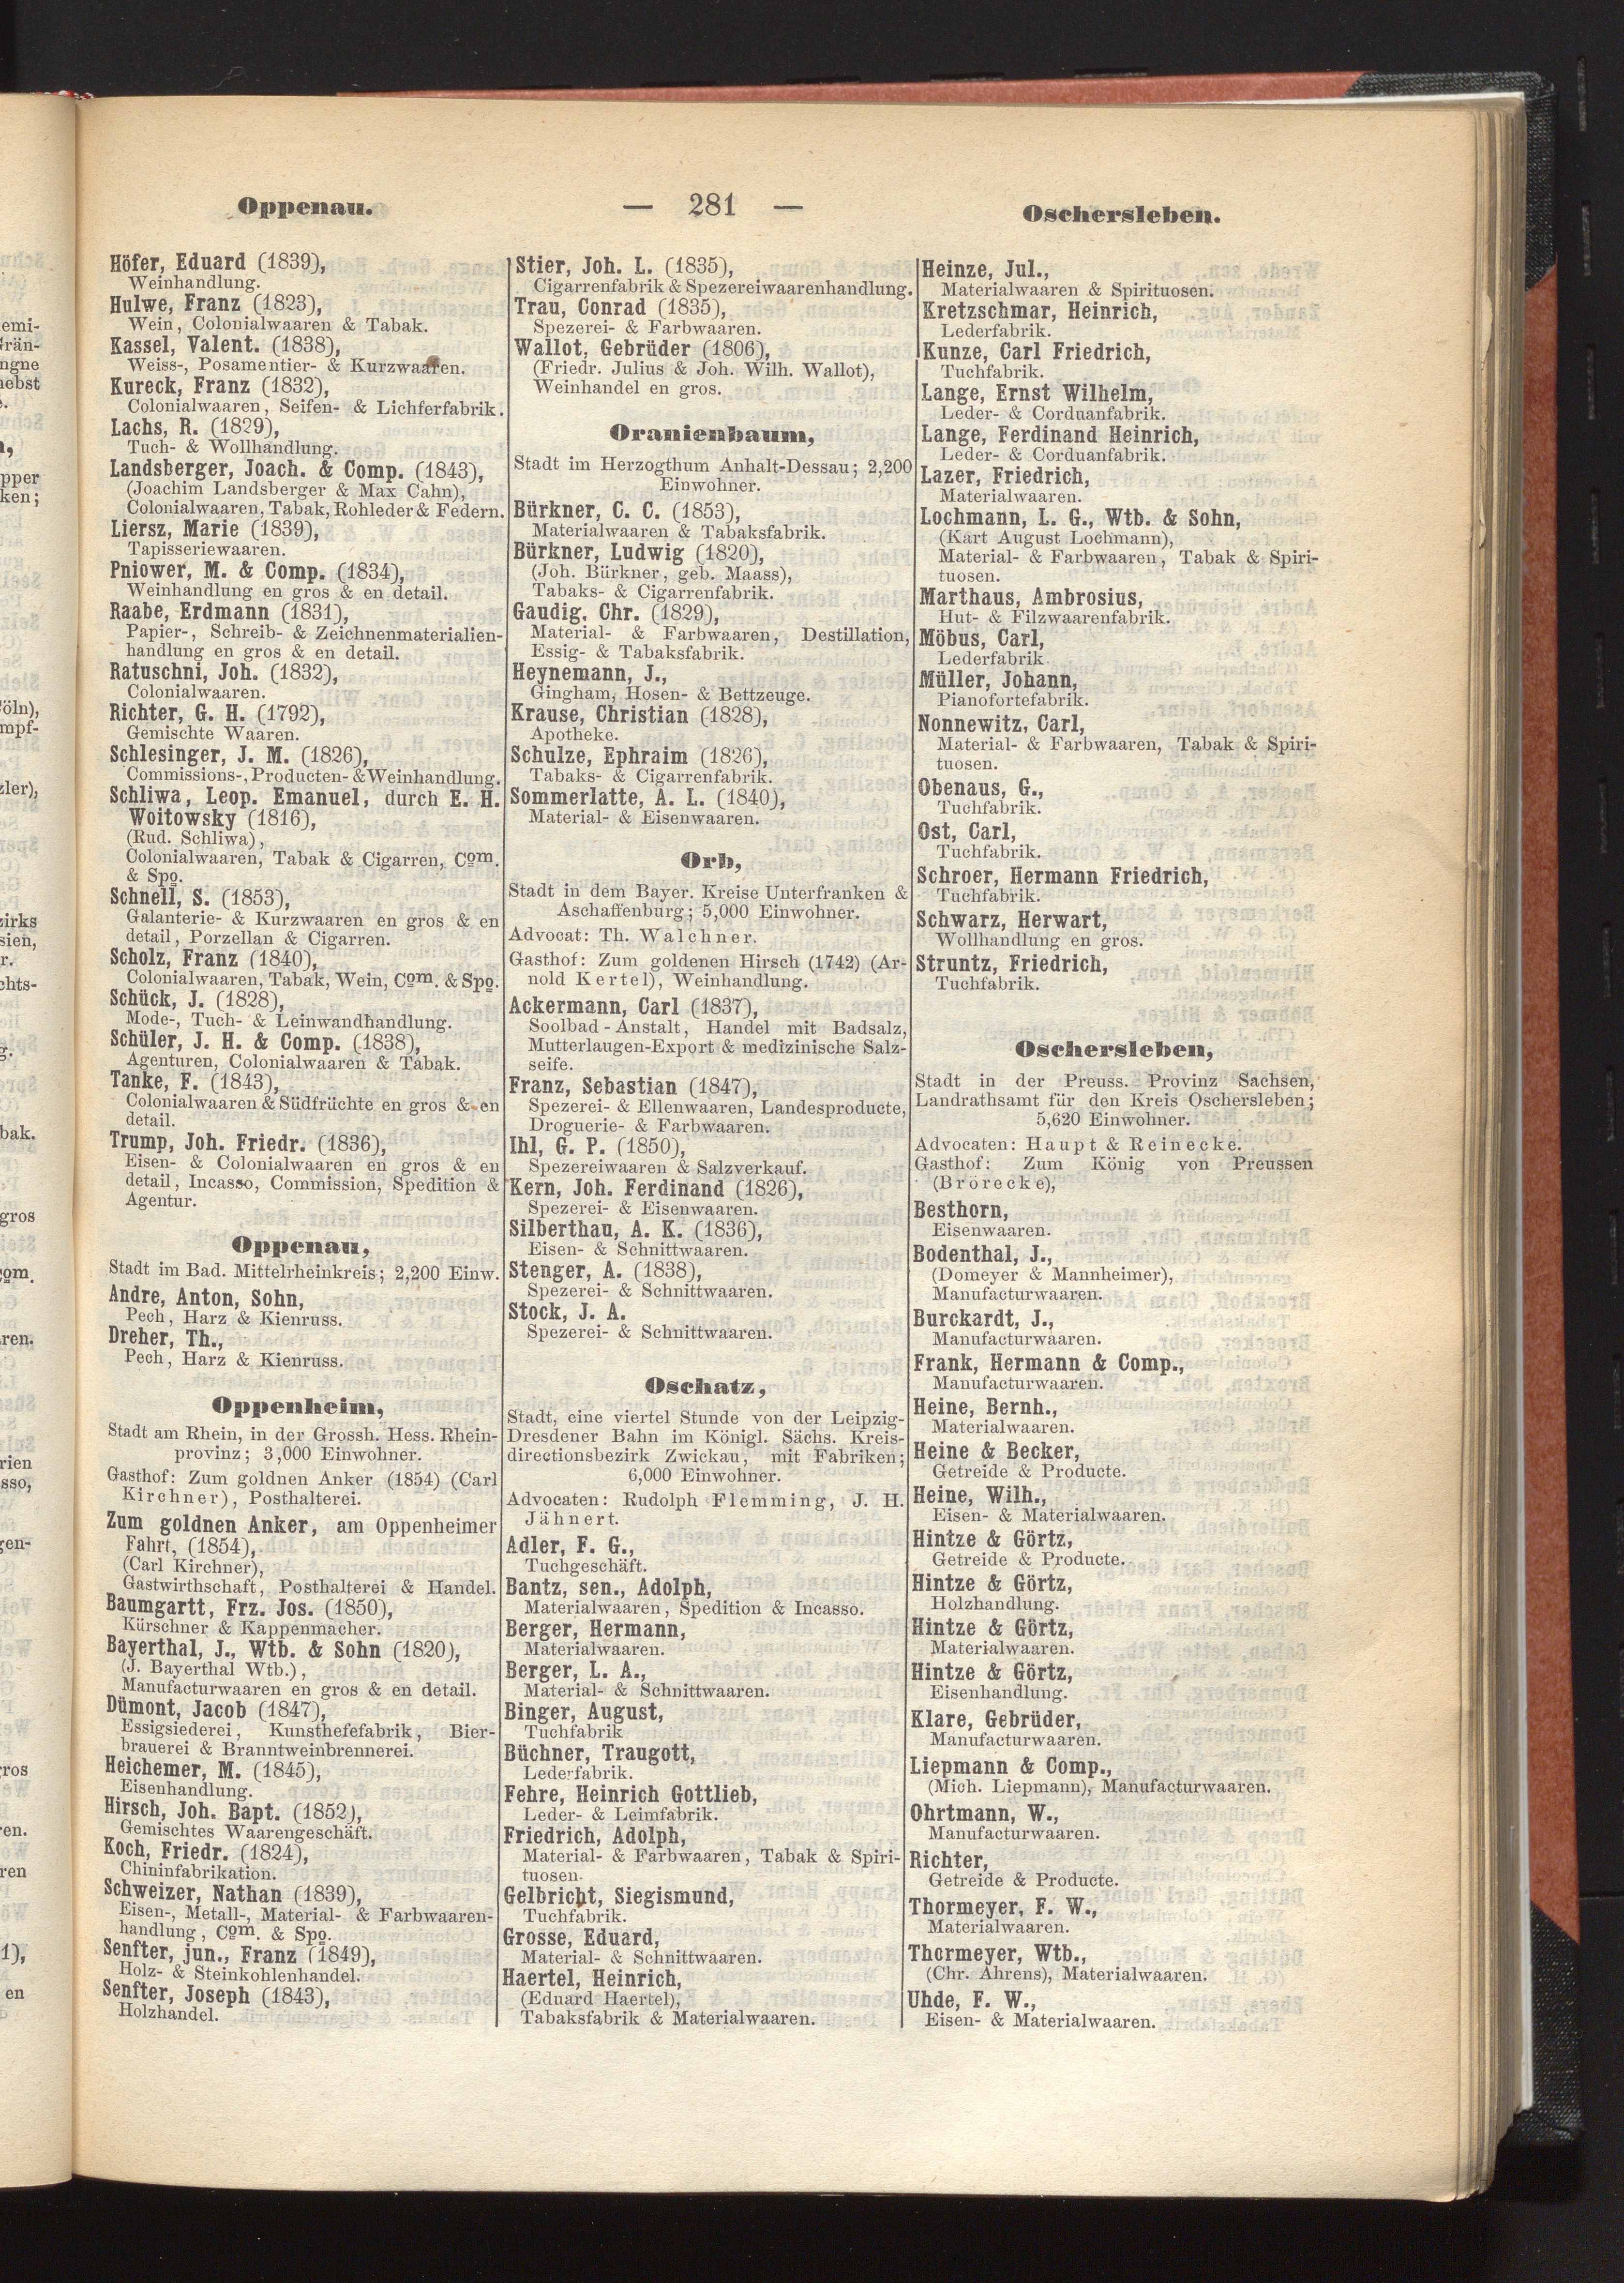 Oppenau.
— 281 —
Oschersleben.
Höfer, Eduard (1839),
Weinhandlung.
Hulwe, Franz (1823),
Wein, Colonialwaaren & Tabak.
Kassel, Valent. (1838),
Weiss-, Posamentier- & Kurzwaaren.
Kureck, Franz (1832),
Colonialwaaren, Seifen- & Lichferfabrik.
Lachs, R. (1829),
Tuch- & Wollhandlung.
Landsberger, Joach. & Comp. (1843),
(Joachim Landsberger & Max Cahn),
Colonialwaaren, Tabak, Rohleder & Federn.
Liersz, Marie (1839),
Tapisseriewaaren.
Pniower, M. & Comp. (1834),
Weinhandlung en gros & en detail.
Raabe, Erdmann (1831),
Papier-, Schreib- & Zeichnenmaterialien-
handlung en gros & en detail.
Ratuschni, Joh. (1832),
Colonialwaaren.
Richter, G. H. (1792),
Gemischte Waaren.
Schlesinger, J. M. (1826),
Commissions-, Producten- & Weinhandlung.
Schliwa, Leop. Emanuel, durch E. H.
Woitowsky (1816),
(Rud. Schliwa),
Colonialwaaren, Tabak & Cigarren, Com.
& Spo.
Schnell, S. (1853),
Galanterie- & Kurzwaaren en gros & en
detail, Porzellan & Cigarren.
Scholz, Franz (1840),
Colonialwaaren, Tabak, Wein, Com. & Spo.
Schück, J. (1828),
Mode-, Tuch- & Leinwandhandlung.
Schüler, J. H. & Comp. (1838),
Agenturen, Colonialwaaren & Tabak.
Tanke, F. (1843),
Colonialwaaren & Südfrüchte en gros & en
detail.
Trump, Joh. Friedr. (1836),
Eisen- & Colonialwaaren en gros & en
detail, Incasso, Commission, Spedition &
Agentur.
Oppenau,
Stadt im Bad. Mittelrheinkreis; 2,200 Einw.
Andre, Anton, Sohn,
Pech, Harz & Kienruss.
Dreher, Th.,
Pech, Harz & Kienruss.
Oppenheim,
Stadt am Rhein, in der Grossh. Hess. Rhein-
provinz; 3,000 Einwohner.
Gasthof: Zum goldnen Anker (1854) (Carl
Kirchner), Posthalterei.
Zum goldnen Anker, am Oppenheimer
Fahrt, (1854),
(Carl Kirchner),
Gastwirthschaft, Posthalterei & Handel.
Baumgartt, Frz. Jos. (1850),
Kürschner & Kappenmacher.
Bayerthal, J., Wtb. & Sohn (1820),
(J. Bayerthal Wtb.),
Manufacturwaaren en gros & en detail.
Dümont, Jacob (1847),
Essigsiederei, Kunsthefefabrik, Bier-
brauerei & Branntweinbrennerei.
Heichemer, M. (1845),
Eisenhandlung.
Hirsch, Joh. Bapt. (1852),
Gemischtes Waarengeschäft.
Koch, Friedr. (1824),
Chininfabrikation.
Schweizer, Nathan (1839),
Eisen-, Metall-, Material- & Farbwaaren-
handlung, Com. & Spo.
Senfter, jun., Franz (1849),
Holz- & Steinkohlenhandel.
Senfter, Joseph (1843),
Holzhandel.
Stier, Joh. L. (1835),
Cigarrenfabrik & Spezereiwaarenhandlung.
Trau, Conrad (1835),
Spezerei- & Farbwaaren.
Wallot, Gebrüder (1806),
(Friedr. Julius & Joh. Wilh. Wallot),
Weinhandel en gros.
Oranienbaum,
Stadt im Herzogthum Anhalt-Dessau; 2,200
Einwohner.
Bürkner, C. C. (1853),
Materialwaaren & Tabaksfabrik.
Bürkner, Ludwig (1820),
(Joh. Bürkner, geb. Maass),
Tabaks- & Cigarrenfabrik.
Gaudig, Chr. (1829),
Material- & Farbwaaren, Destillation,
Essig- & Tabaksfabrik.
Heynemann, J.,
Gingham, Hosen- & Bettzeuge.
Krause, Christian (1828),
Apotheke.
Schulze, Ephraim (1826),
Tabaks- & Cigarrenfabrik.
Sommerlatte, A. L. (1840),
Material- & Eisenwaaren.
Orb,
Stadt in dem Bayer. Kreise Unterfranken &
Aschaffenburg; 5,000 Einwohner.
Advocat: Th. Walchner.
Gasthof: Zum goldenen Hirsch (1742) (Ar-
nold Kertel), Weinhandlung.
Ackermann, Carl (1837),
Soolbad-Anstalt, Handel mit Badsalz,
Mutterlaugen-Export & medizinische Salz-
seife.
Franz, Sebastian (1847),
Spezerei- & Ellenwaaren, Landesproducte,
Droguerie- & Farbwaaren.
Ihl, G. P. (1850),
Spezereiwaaren & Salzverkauf.
Kern, Joh. Ferdinand (1826),
Spezerei- & Eisenwaaren.
Silberthau, A. K. (1836),
Eisen- & Schnittwaaren.
Stenger, A. (1838),
Spezerei- & Schnittwaaren.
Stock, J. A.
Spezerei- & Schnittwaaren.
Oschatz,
Stadt, eine viertel Stunde von der Leipzig-
Dresdener Bahn im Königl. Sächs. Kreis-
directionsbezirk Zwickau, mit Fabriken;
6,000 Einwohner.
Advocaten: Rudolph Flemming, J. H.
Jähnert.
Adler, F. G.,
Tuchgeschäft.
Bantz, sen., Adolph,
Materialwaaren, Spedition & Incasso.
Berger, Hermann,
Materialwaaren.
Berger, L. A.,
Material- & Schnittwaaren.
Binger, August,
Tuchfabrik
Büchner, Traugott,
Lederfabrik.
Fehre, Heinrich Gottlieb,
Leder- & Leimfabrik.
Friedrich, Adolph,
Material- & Farbwaaren, Tabak & Spiri-
tuosen.
Gelbricht, Siegismund,
Tuchfabrik.
Grosse, Eduard,
Material- & Schnittwaaren.
Haertel, Heinrich,
(Eduard Haertel),
Tabaksfabrik & Materialwaaren.
Heinze, Jul.,
Materialwaaren & Spirituosen.
Kretzschmar, Heinrich,
Lederfabrik.
Kunze, Carl Friedrich,
Tuchfabrik.
Lange, Ernst Wilhelm,
Leder- & Corduanfabrik.
Lange, Ferdinand Heinrich,
Leder- & Corduanfabrik.
Lazer, Friedrich,
Materialwaaren.
Lochmann, L. G., Wtb. & Sohn,
(Kart August Lochmann),
Material- & Farbwaaren, Tabak & Spiri-
tuosen.
Marthaus, Ambrosius,
Hut- & Filzwaarenfabrik.
Möbus, Carl,
Lederfabrik.
Müller, Johann,
Pianofortefabrik.
Nonnewitz, Carl,
Material- & Farbwaaren, Tabak & Spiri-
tuosen.
Obenaus, G.,
Tuchfabrik.
Ost, Carl,
Tuchfabrik.
Schroer, Hermann Friedrich,
Tuchfabrik.
Schwarz, Herwart,
Wollhandlung en gros.
Struntz, Friedrich,
Tuchfabrik.
Oschersleben,
Stadt in der Preuss. Provinz Sachsen,
Landrathsamt für den Kreis Oschersleben;
5,620 Einwohner.
Advocaten: Haupt & Reinecke.
Gasthof: Zum König von Preussen
(Brörecke),
Besthorn,
Eisenwaaren.
Bodenthal, J.,
(Domeyer & Mannheimer),
Manufacturwaaren.
Burckardt, J.,
Manufacturwaaren.
Frank, Hermann & Comp.,
Manufacturwaaren.
Heine, Bernh.,
Materialwaaren.
Heine & Becker,
Getreide & Producte.
Heine, Wilh.,
Eisen- & Materialwaaren.
Hintze & Görtz,
Getreide & Producte.
Hintze & Görtz,
Holzhandlung.
Hintze & Görtz,
Materialwaaren.
Hintze & Görtz,
Eisenhandlung.
Klare, Gebrüder,
Manufacturwaaren.
Liepmann & Comp.,
(Mich. Liepmann), Manufacturwaaren.
Ohrtmann, W.,
Manufacturwaaren.
Richter,
Getreide & Producte.
Thormeyer, F. W.,
Materialwaaren.
Thormeyer, Wtb.,
(Chr. Ahrens), Materialwaaren.
Uhde, F. W.,
Eisen- & Materialwaaren.